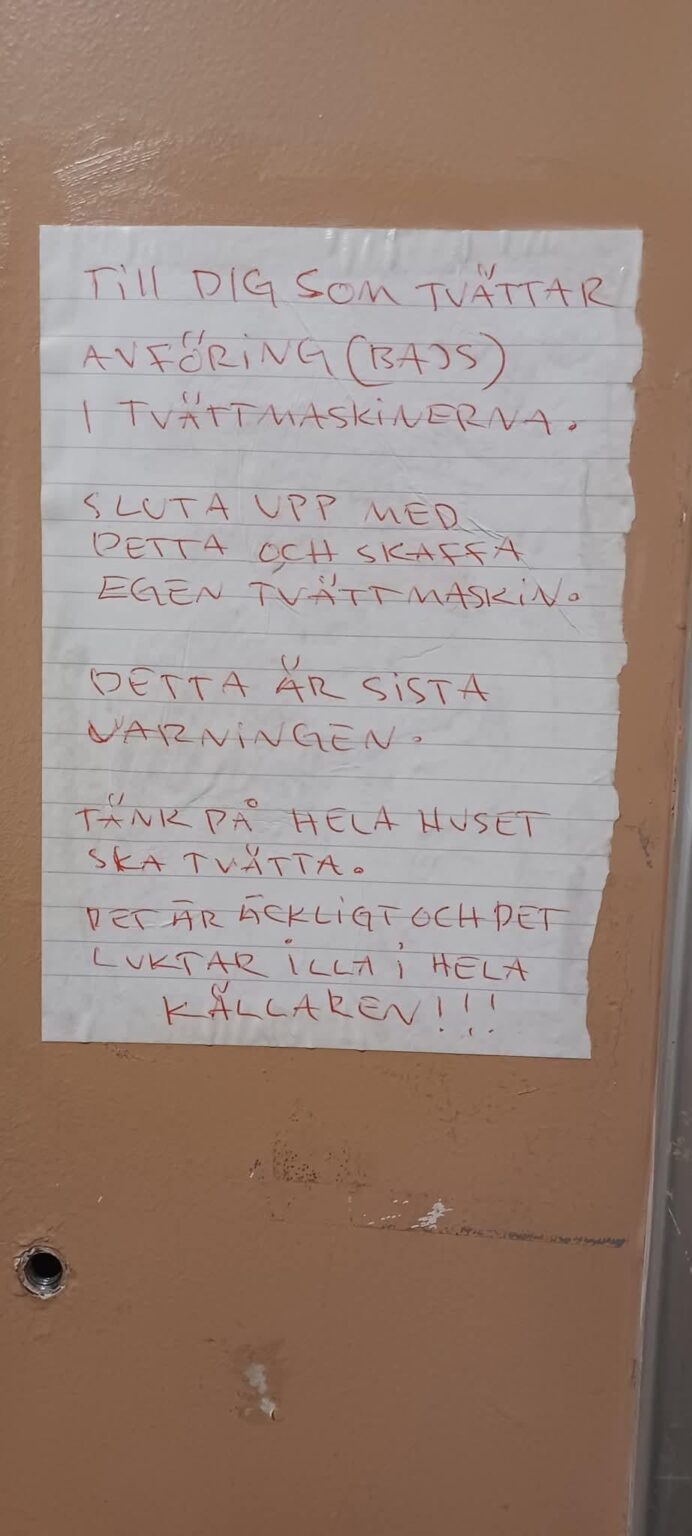 Till DIG SOM TVÄTTAR
AVFÖRING (BAJS)
I TVÄTTMASKINERNA.
SLUTA UPP MED
DETTA OCH SKAFFA
EGEN TVÄTTMASKIN.
DETTA ÄR SISTA
VARNINGEN.
TÄNK PÅ HELA HUSET
SKA TVÄTTA.
DET ÄR ÄCKLIGT OCH DET
LUKTAR ILLA I HELA
KÄLLAREN!!!